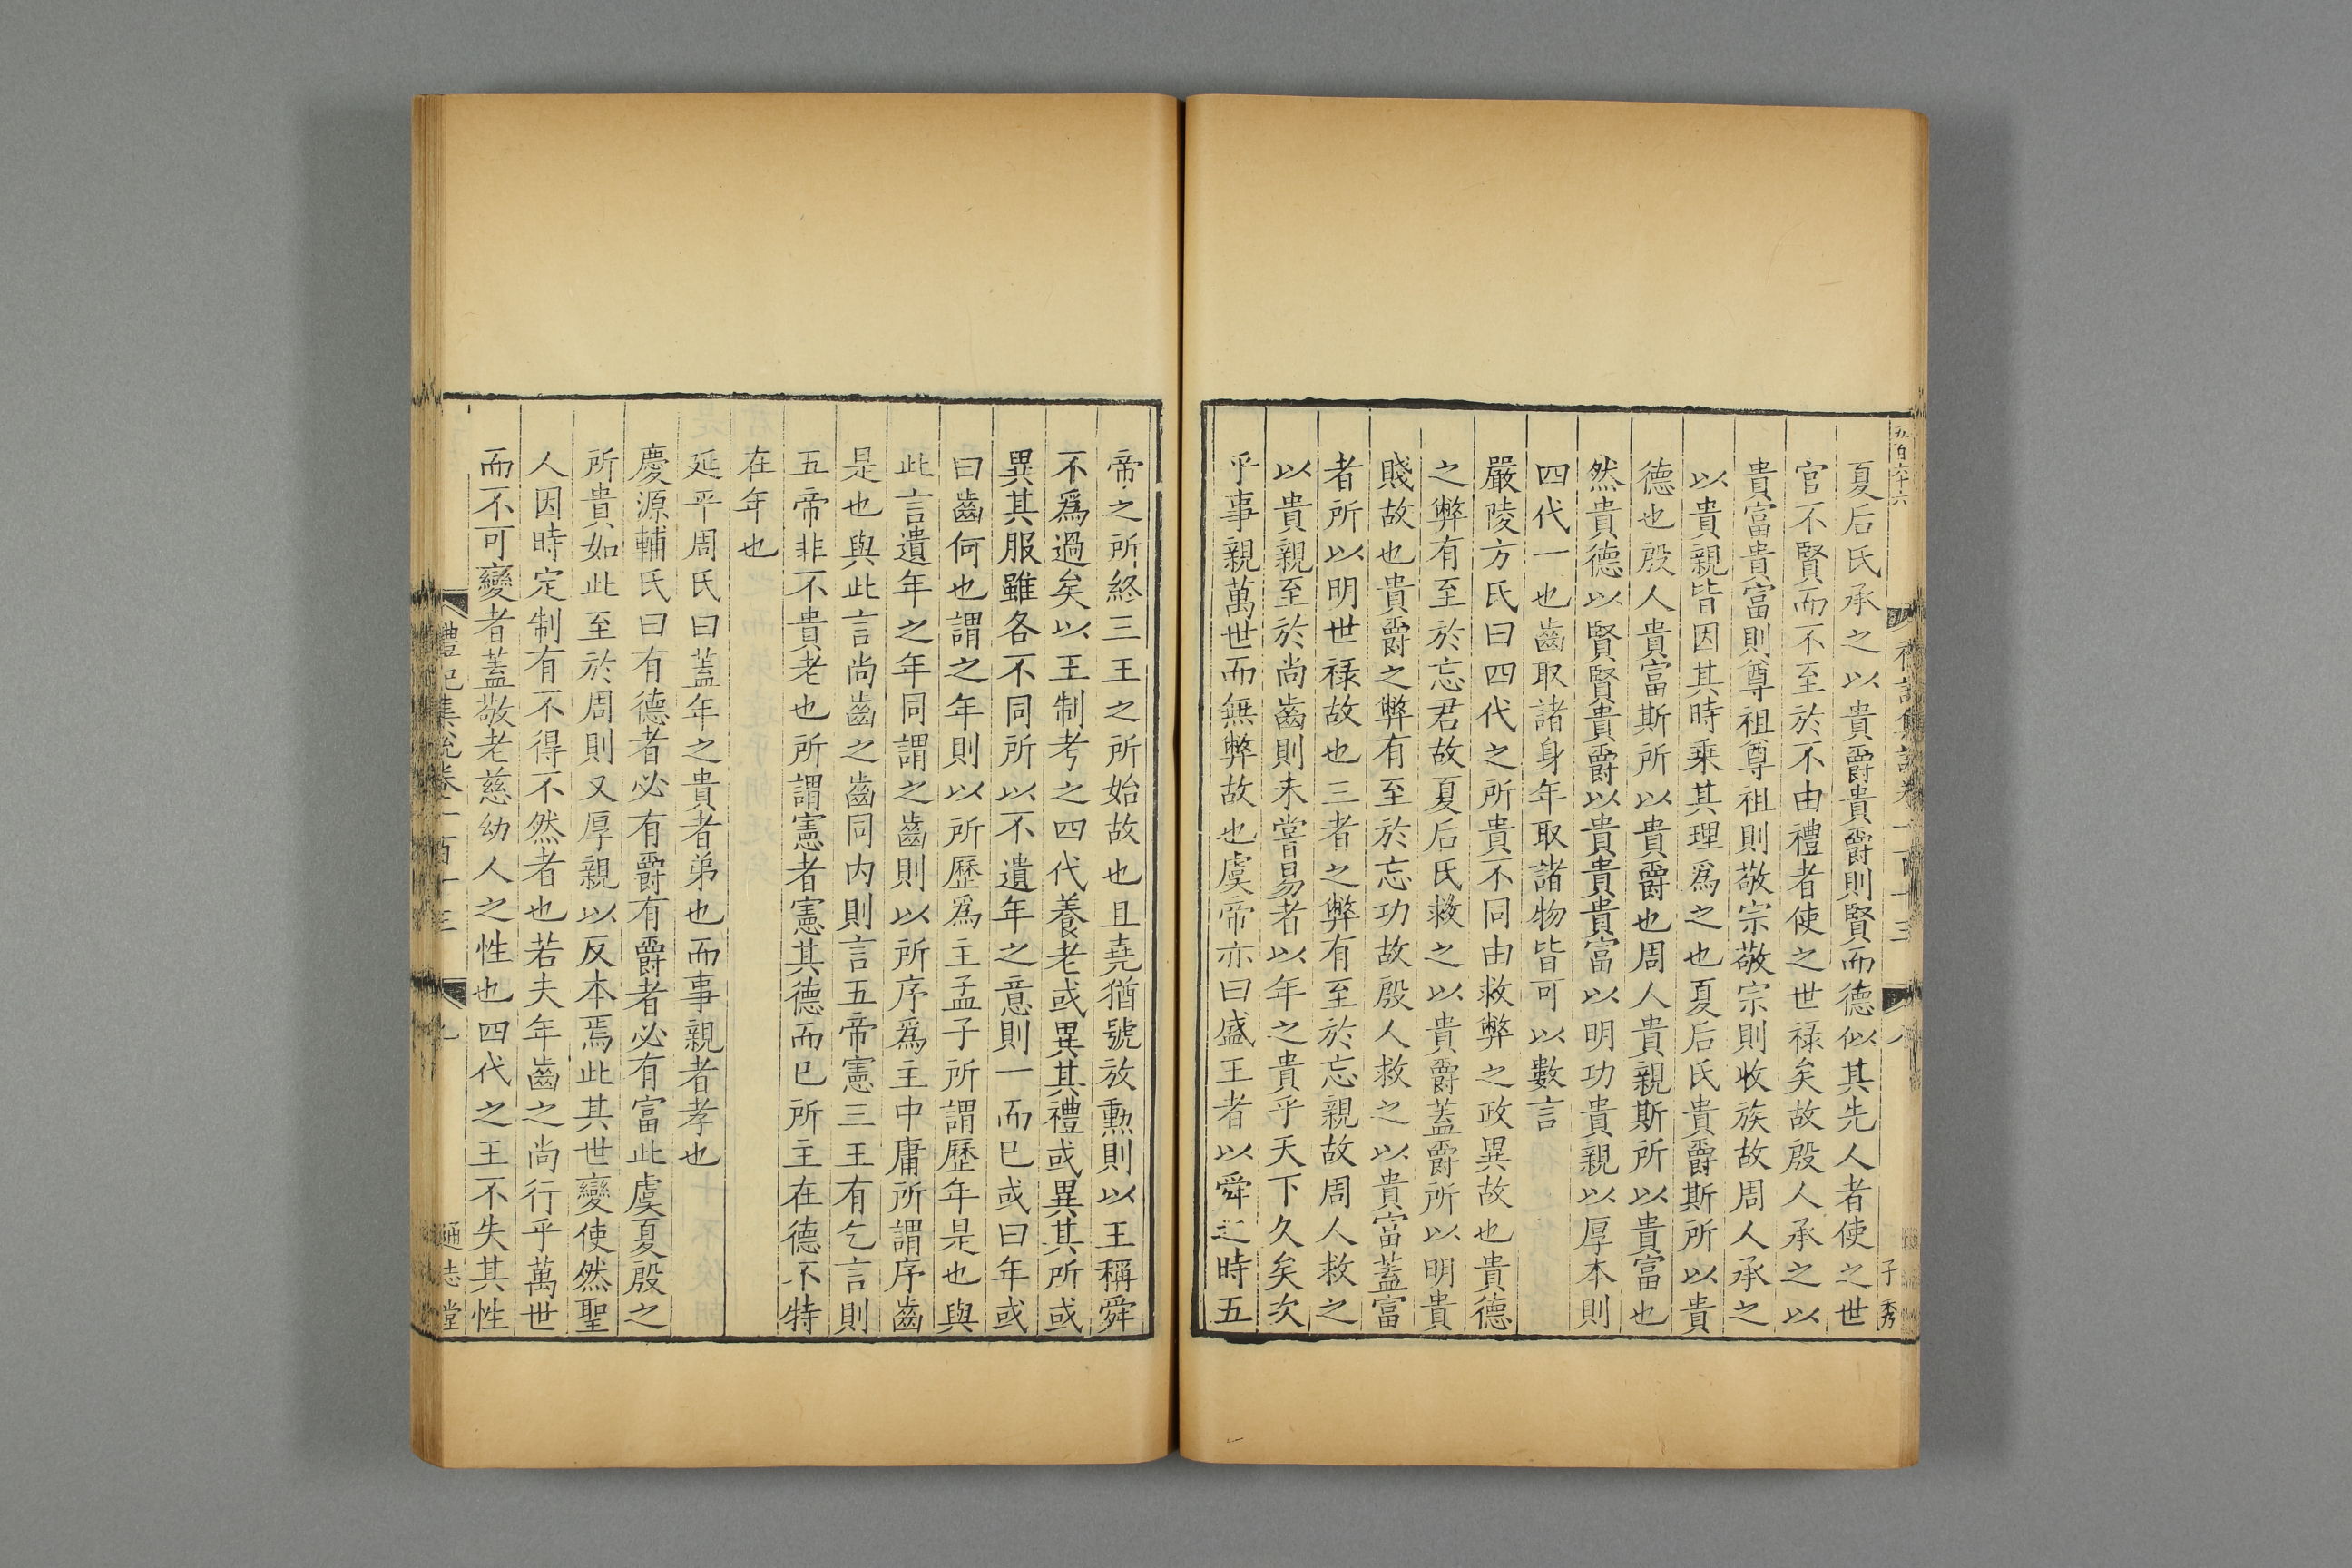 五百六十六
禮記集說卷一百十三
八
子秀
夏后氏承之以貴爵貴爵則賢而德似其先人者使之世
官不賢而不至於不由禮者使之世祿矣故殷人承之以
貴富貴富則尊祖尊祖則敬宗敬宗則收族故周人承之
以貴親皆因其時乘其理爲之也夏后氏貴爵斯所以貴
德也殷人貴富斯所以貴爵也周人貴親斯所以貴富也
然貴德以賢賢貴爵以貴貴貴富以明功貴親以厚本則
四代一也齒取諸身年取諸物皆可以數言
嚴陵方氏曰四代之所貴不同由救弊之政異故也貴德
之弊有至於忘君故夏后氏救之以貴爵蓋爵所以明貴
賤故也貴爵之弊有至於忘功故殷人救之以貴富蓋富
者所以明世祿故也三者之弊有至於忘親故周人救之
以貴親至於尚齒則未嘗易者以年之貴乎天下久矣次
乎事親萬世而無弊故也虞帝亦曰盛王者以舜之時五
帝之所終三王之所始故也且堯猶號放勳則以王稱舜
不爲過矣以王制考之四代養老或異其禮或異其所或
異其服雖各不同所以不遺年之意則一而已或曰年或
曰齒何也謂之年則以所歷爲主孟子所謂歷年是也與
此言遺年之年同謂之齒則以所序爲主中庸所謂序齒
是也與此言尚齒之齒同内則言五帝憲三王有乞言則
五帝非不貴老也所謂憲者憲其德而已所主在德不特
在年也
延平周氏曰蓋年之貴者弟也而事親者孝也
慶源輔氏曰有德者必有爵有爵者必有富此虞夏殷之
所貴如此至於周則又厚親以反本焉此其世變使然聖
人因時定制有不得不然者也若夫年齒之尚行乎萬世
而不可變者蓋敬老慈幼人之性也四代之王不失其性
禮記集說卷一百十三
九
通志堂